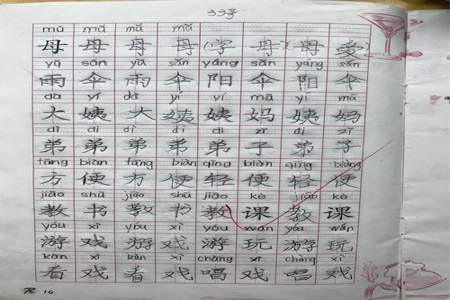 mǔ mǔ mǔ
母 母 母 母 字 母 母 爱
yǔ sǎn yǔ sǎn yáng sǎn yáng sǎn
雨 伞 雨 伞 阳 伞 阳 伞
dà yí dà yí yí mā yí mā
大 姨 大 姨 姨 妈 姨 妈
dì di dì di dì zǐ dì zǐ
弟 弟 弟 弟 弟 子 弟 子
fāng biàn fāng biàn qīng biàn qīng biàn
方 便 方 便 轻 便 轻 便
jiāo shū jiāo shū jiāo kè jiāo kè
教 书 教 书 教 课 教 课
yóu xì yóu xì yóu wán yóu wán
游 戏 游 戏 游 玩 游 玩
kàn xì kàn xì chàng xì chàng xì
看 戏 看 戏 唱 戏 唱 戏
16